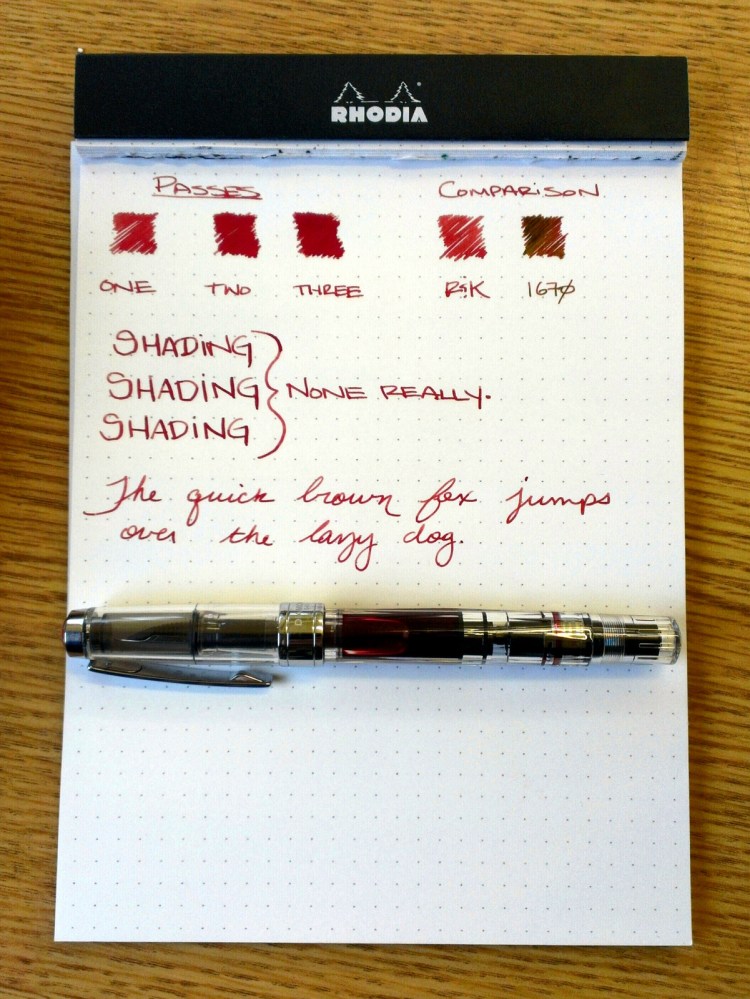 RHODIA
PASSES COMPARISON
ONE TWO THREE R&K 1670
SHADING
SHADING NONE REALLY.
SHADING
The quick brown fox jumps
over the lazy dog.